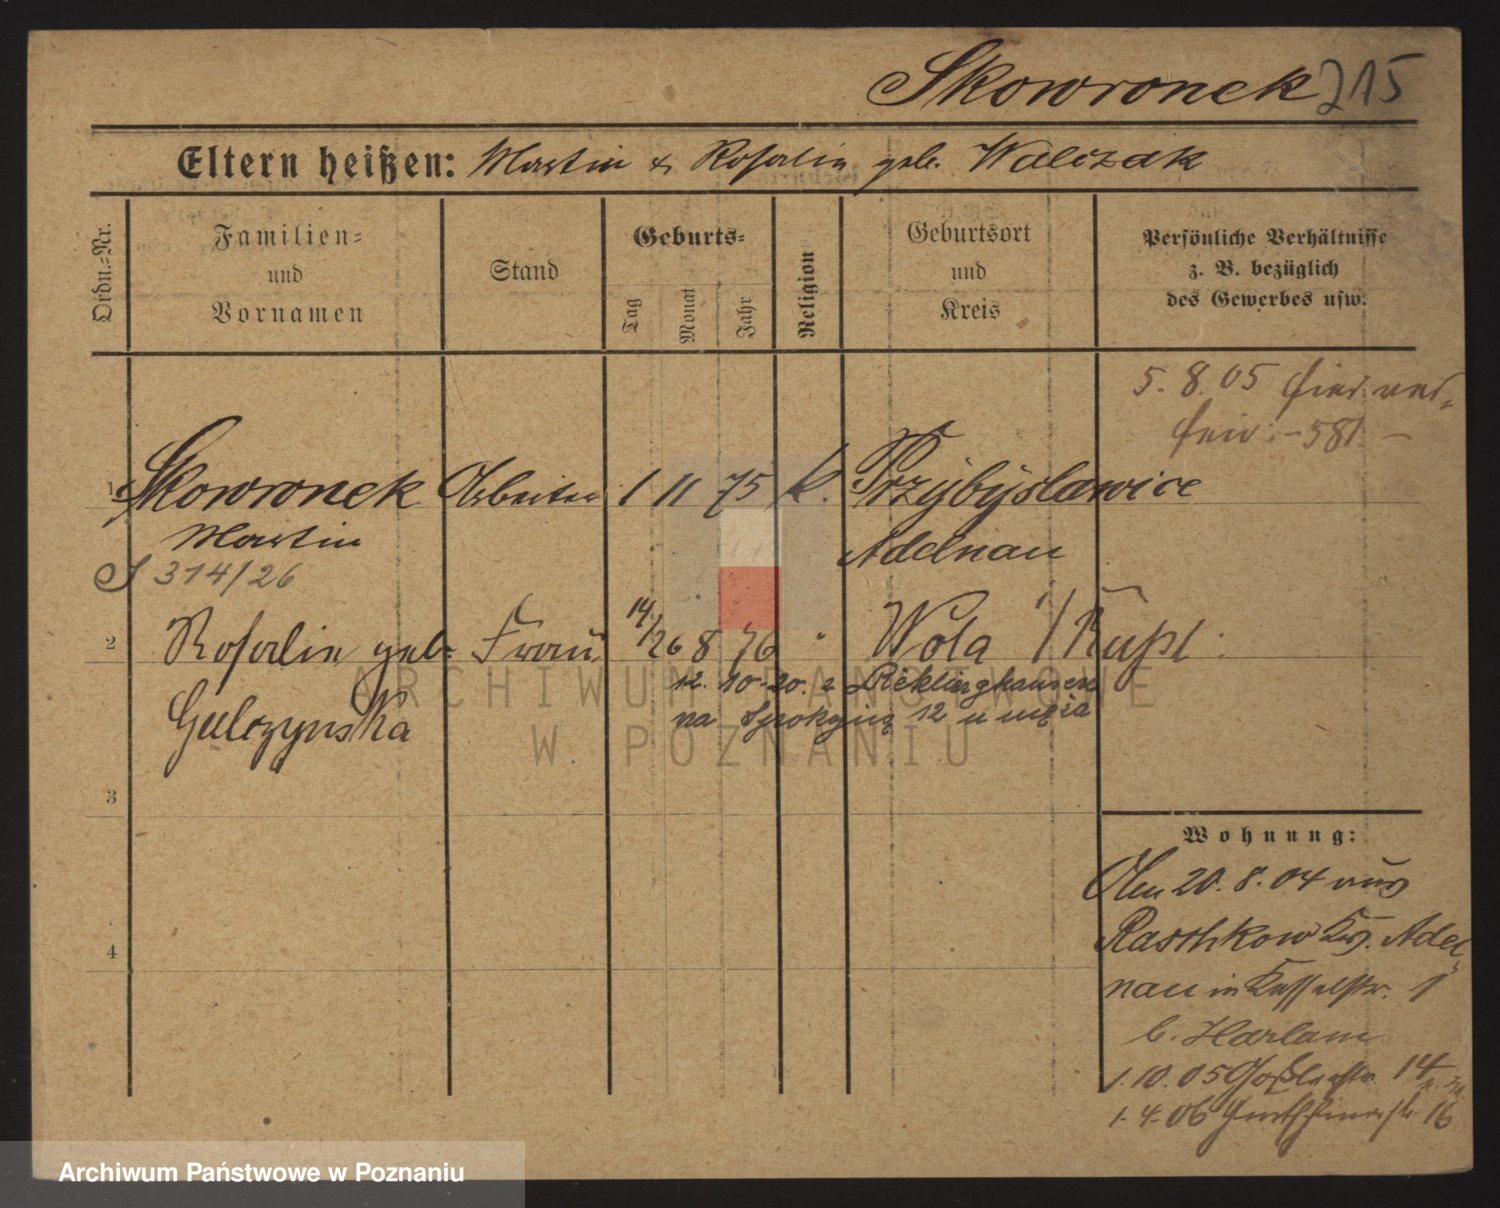 Skowronek 215
Eltern heißen: Martin & Rosalie geb. Walczak
Ordn.-Nr.
Familien-
und
Vornamen
Stand
Geburts-
Tag
Monat
Jahr
Religion
Geburtsort
und
Kreis
Persönliche Verhältnisse
z. B. bezüglich
des Gewerbes usw.
5. 8. 05
581
1 Skowronek Arbeiter 1 11 75 k. Przybyslawice
Martin Adelnau
314/26
2 Rosalie geb. Frau 14/26 8 76 " Wola
Gulczynska
12. 10. 20. z Reklinghausen
na 12 u męża
3
4
Wohnung:
Am 20. 8. 04 aus
Raschkow Krs. Adel-
nau in Kesselstr. 1
b. Harlam
1. 10. 05 Goßlerstr. 14
1. 4. 06 16
ARCHIWUM PAŃSTWOWE
W POZNANIU
Archiwum Państwowe w Poznaniu